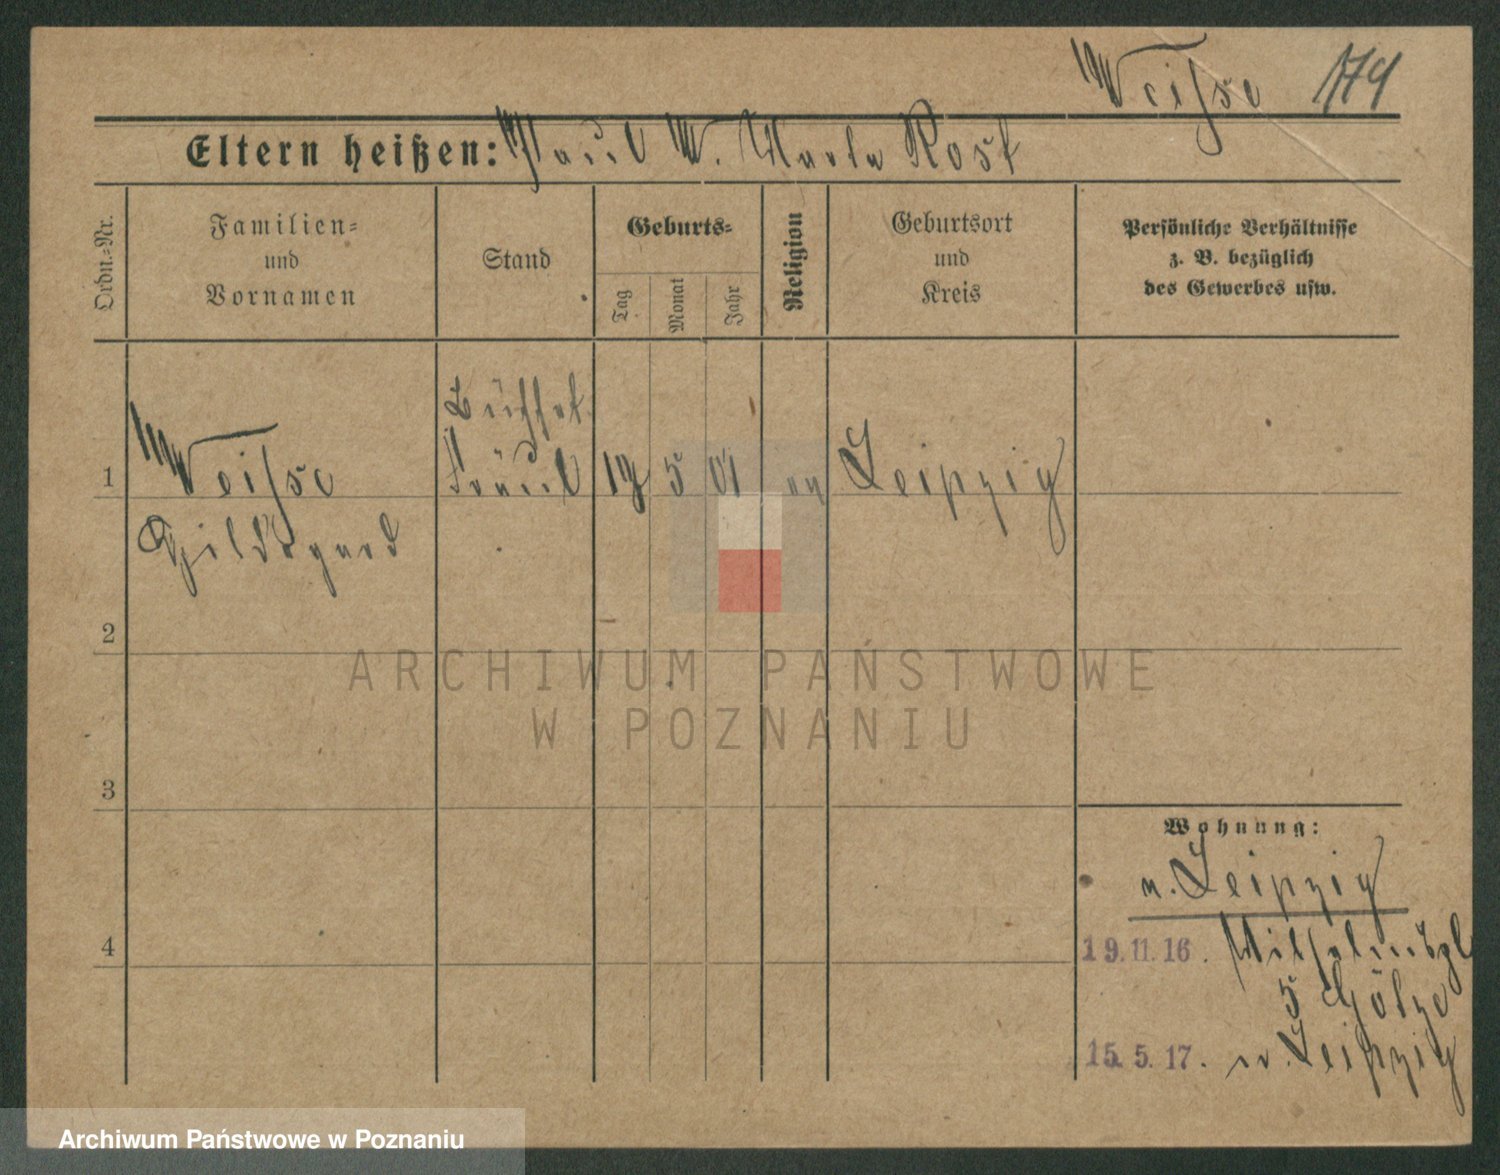 Weisse 174
Eltern heißen: Paul W. Marta Rost
Ordn.-Nr.
Familien-
und
Vornamen
Stand
Geburts-
Tag
Monat
Jahr
Religion
Geburtsort
und
Kreis
Persönliche Verhältnisse
z. B. bezüglich
des Gewerbes usw.
Büffet
1 Weisse Fräul 19 5 01 ev Leipzig
Hildegard
2
ARCHIWUM PAŃSTWOWE
W POZNANIU
3
Wohnung:
v. Leipzig
4
19. 11. 16.
5 Götze
15. 5. 17. n. Leipzig
Archiwum Państwowe w Poznaniu